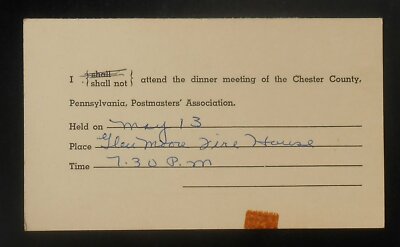 I {shall
{shall not} attend the dinner meeting of the Chester County,
Pennsylvania, Postmasters' Association.
Held on May 13
Place Glen Moore Fire House
Time 7.30 P.M